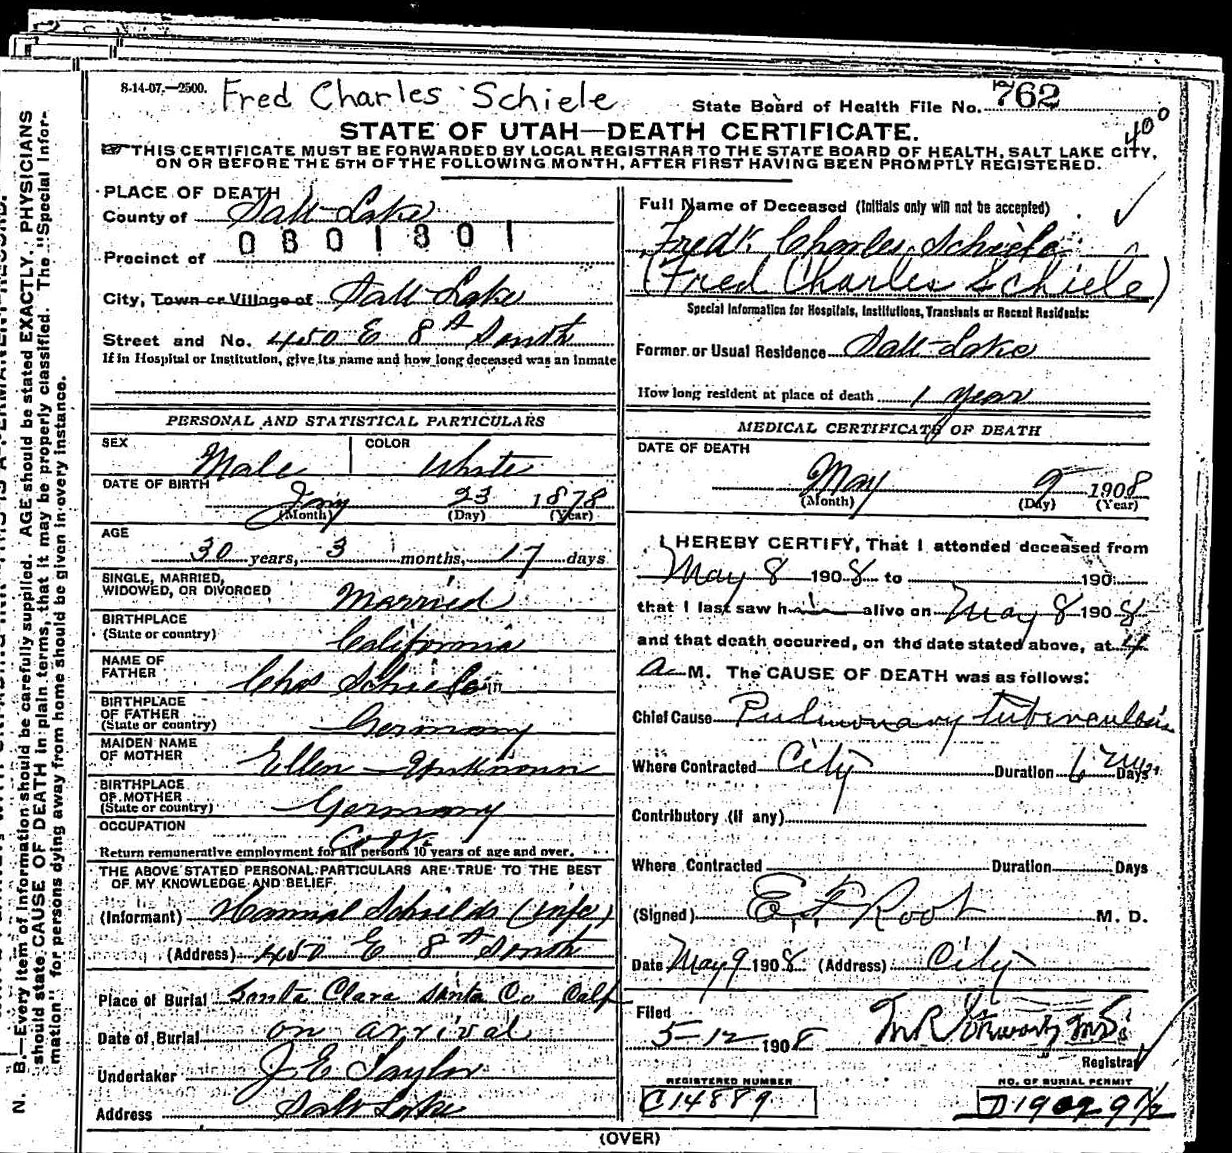 8-14-07.—2500. Fred Charles Schiele
State Board of Health File No. 762
400
STATE OF UTAH—DEATH CERTIFICATE.
THIS CERTIFICATE MUST BE FORWARDED BY LOCAL REGISTRAR TO THE STATE BOARD OF HEALTH, SALT LAKE CITY,
ON OR BEFORE THE 5TH OF THE FOLLOWING MONTH, AFTER FIRST HAVING BEEN PROMPTLY REGISTERED.
PLACE OF DEATH
County of Salt Lake
0801801
Precinct of
City, Town or Village of Salt Lake
Street and No. 450 E 8th South
If in Hospital or Institution, give its name and how long deceased was an inmate
PERSONAL AND STATISTICAL PARTICULARS
SEX Male COLOR White
DATE OF BIRTH Jany 23 1878
(Month) (Day) (Year)
AGE
30 years, 3 months, 17 days
SINGLE, MARRIED,
WIDOWED, OR DIVORCED Married
BIRTHPLACE
(State or country) California
NAME OF
FATHER Chas Schiele
BIRTHPLACE
OF FATHER
(State or country) Germany
MAIDEN NAME
OF MOTHER Ellen Unknown
BIRTHPLACE
OF MOTHER
(State or country) Germany
OCCUPATION Cook
Return remunerative employment for all persons 10 years of age and over.
THE ABOVE STATED PERSONAL PARTICULARS ARE TRUE TO THE BEST
OF MY KNOWLEDGE AND BELIEF
(Informant) Schields (wife)
(Address) 450 E 8th South
Place of Burial Santa Clara Santa Co Calf
Date of Burial on arrival
Undertaker J E Taylor
Address Salt Lake
Full Name of Deceased (Initials only will not be accepted)
Fredk Charles Schiele
(Fred Charles Schiele)
Special Information for Hospitals, Institutions, Transients or Recent Residents:
Former or Usual Residence Salt Lake
How long resident at place of death 1 year
MEDICAL CERTIFICATE OF DEATH
DATE OF DEATH
May 9 1908
(Month) (Day) (Year)
I HEREBY CERTIFY, That I attended deceased from
May 8 1908 to 190
that I last saw him alive on May 8 1908
and that death occurred, on the date stated above, at 4
a M. The CAUSE OF DEATH was as follows:
Chief Cause Pulmonary Tuberculosis
Where Contracted City Duration 6 Days
Contributory (if any)
Where Contracted Duration Days
(Signed) E F Root M. D.
Date May 9 1908 (Address) City
Filed
5-12-1908
Registrar
REGISTERED NUMBER
C14889
NO. OF BURIAL PERMIT
D19029 1/2
(OVER)
N. B.—Every item of information should be carefully supplied. AGE should be stated EXACTLY. PHYSICIANS
should state CAUSE OF DEATH in plain terms, that it may be properly classified. The "Special Infor-
mation" for persons dying away from home should be given in every instance.